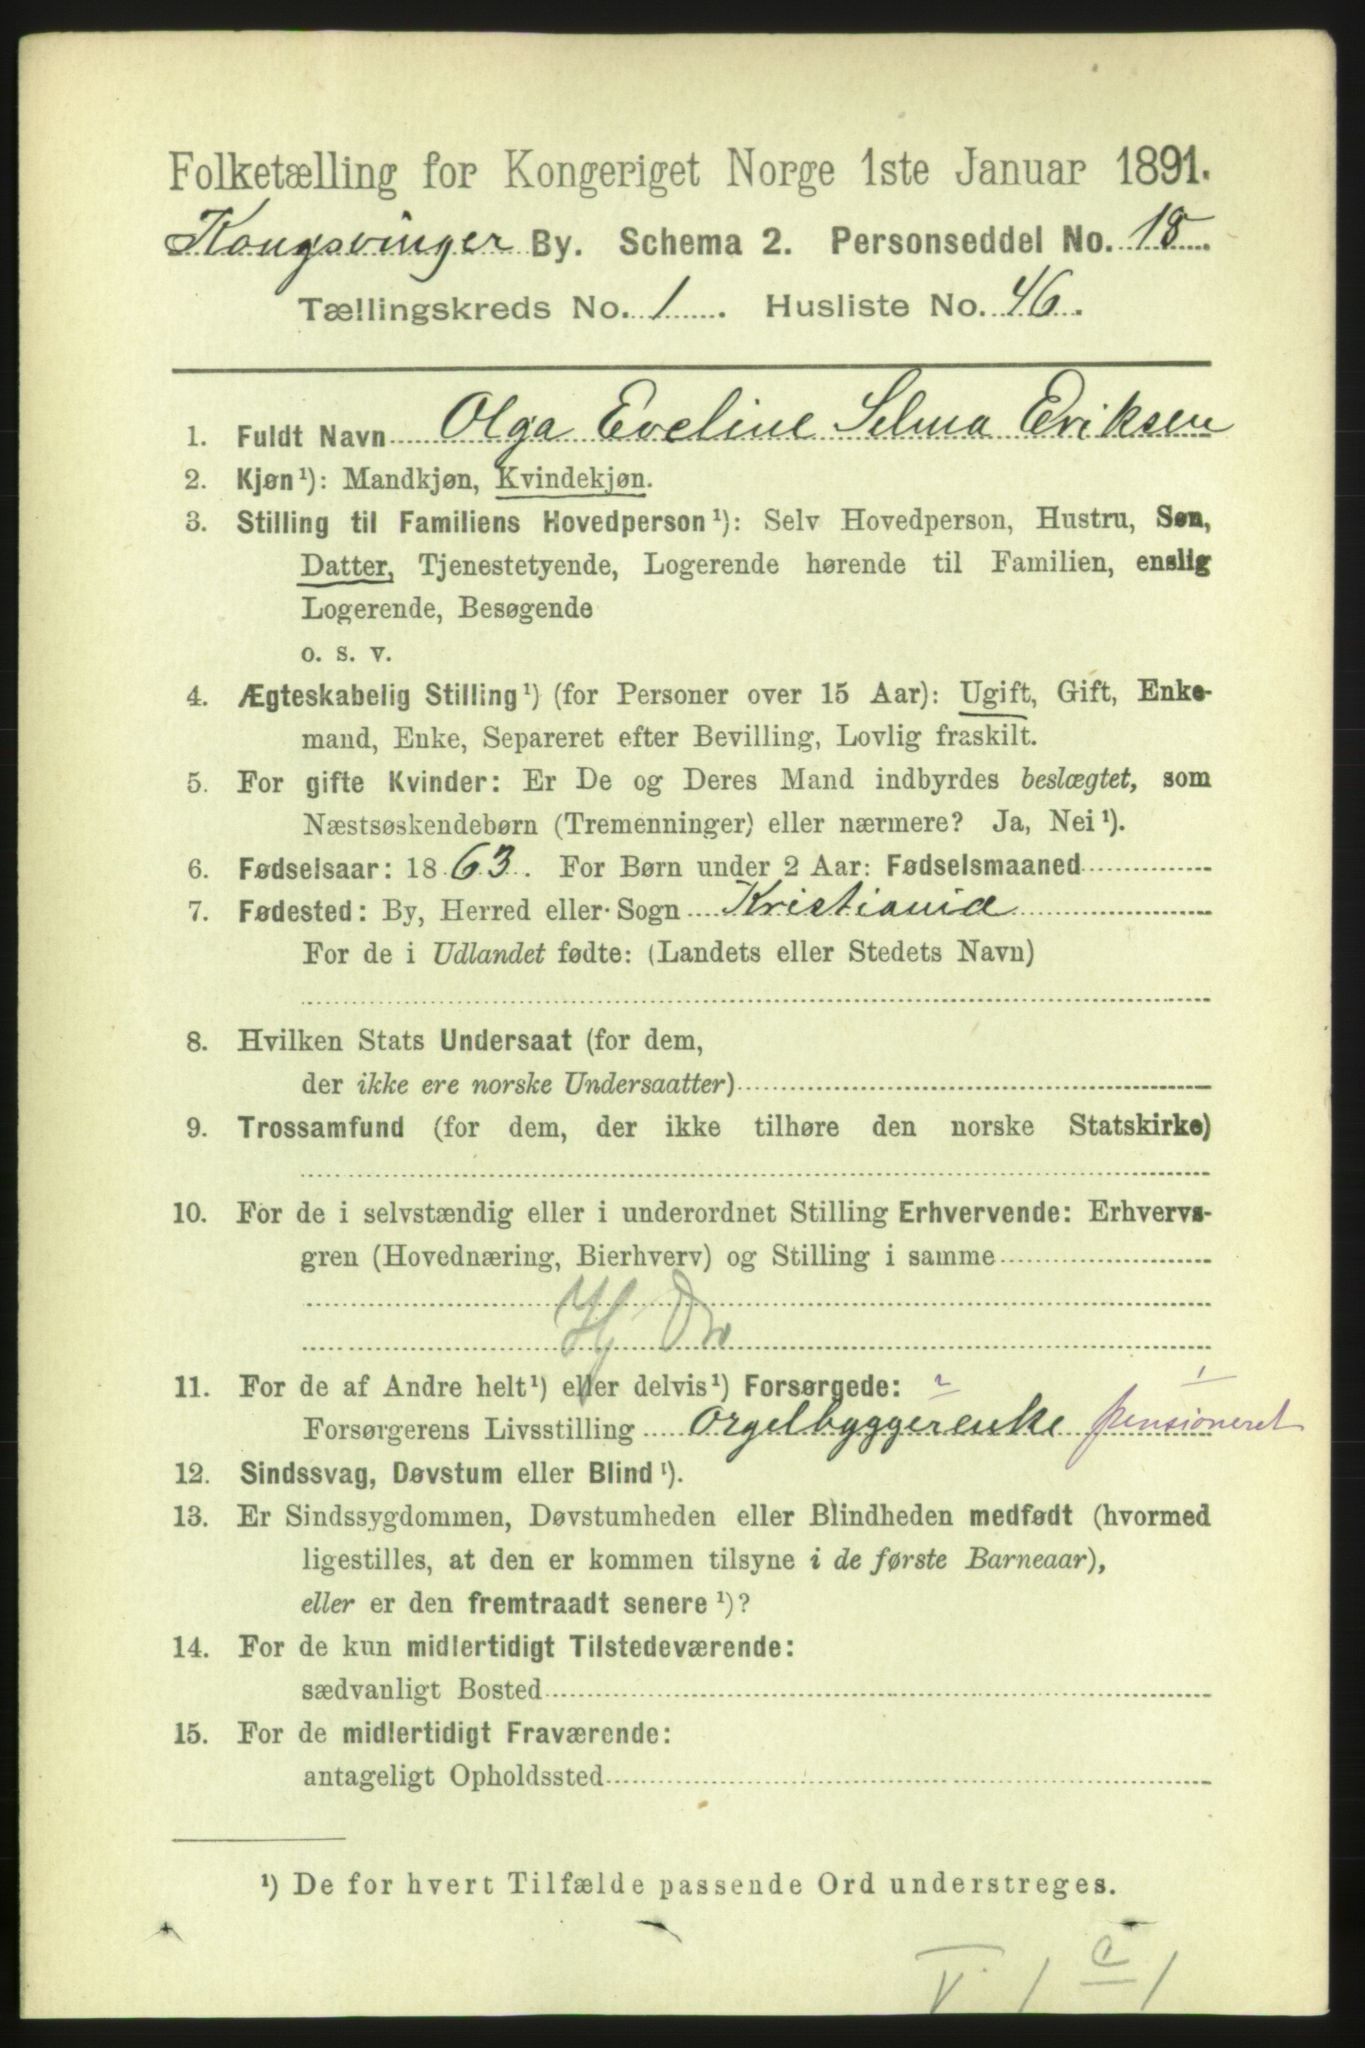 Folketælling for Kongeriget Norge 1ste Januar 1891.
Kongsvinger By. Schema 2. Personseddel No. 18.
Tællingskreds No. 1. Husliste No. 46.
1. Fuldt Navn Olga Eveline Selma Eriksen
2. Kjøn¹): Mandkjøn, Kvindekjøn.
3. Stilling til Familiens Hovedperson¹): Selv Hovedperson, Hustru, Søn,
Datter, Tjenestetyende, Logerende hørende til Familien, enslig
Logerende, Besøgende
o. s. v.
4. Ægteskabelig Stilling¹) (for Personer over 15 Aar): Ugift, Gift, Enke-
mand, Enke, Separeret efter Bevilling, Lovlig fraskilt.
5. For gifte Kvinder: Er De og Deres Mand indbyrdes beslægtet, som
Næstsøskendebørn (Tremenninger) eller nærmere? Ja, Nei¹).
6. Fødselsaar: 1863. For Børn under 2 Aar: Fødselsmaaned
7. Fødested: By, Herred eller Sogn Kristiania
For de i Udlandet fødte: (Landets eller Stedets Navn)
8. Hvilken Stats Undersaat (for dem,
der ikke ere norske Undersaatter)
9. Trossamfund (for dem, der ikke tilhøre den norske Statskirke)
10. For de i selvstændig eller i underordnet Stilling Erhvervende: Erhvervs-
gren (Hovednæring, Bierhverv) og Stilling i samme
Hj
11. For de af Andre helt¹) eller delvis¹) Forsørgede:
Forsørgerens Livsstilling Orgelbyggerenke pensioneret
12. Sindssvag, Døvstum eller Blind¹).
13. Er Sindssygdommen, Døvstumheden eller Blindheden medfødt (hvormed
ligestilles, at den er kommen tilsyne i de første Barneaar),
eller er den fremtraadt senere¹)?
14. For de kun midlertidigt Tilstedeværende:
sædvanligt Bosted
15. For de midlertidigt Fraværende:
antageligt Opholdssted
¹) De for hvert Tilfælde passende Ord understreges.